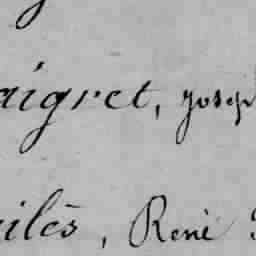 aigret, josep
ilès, René